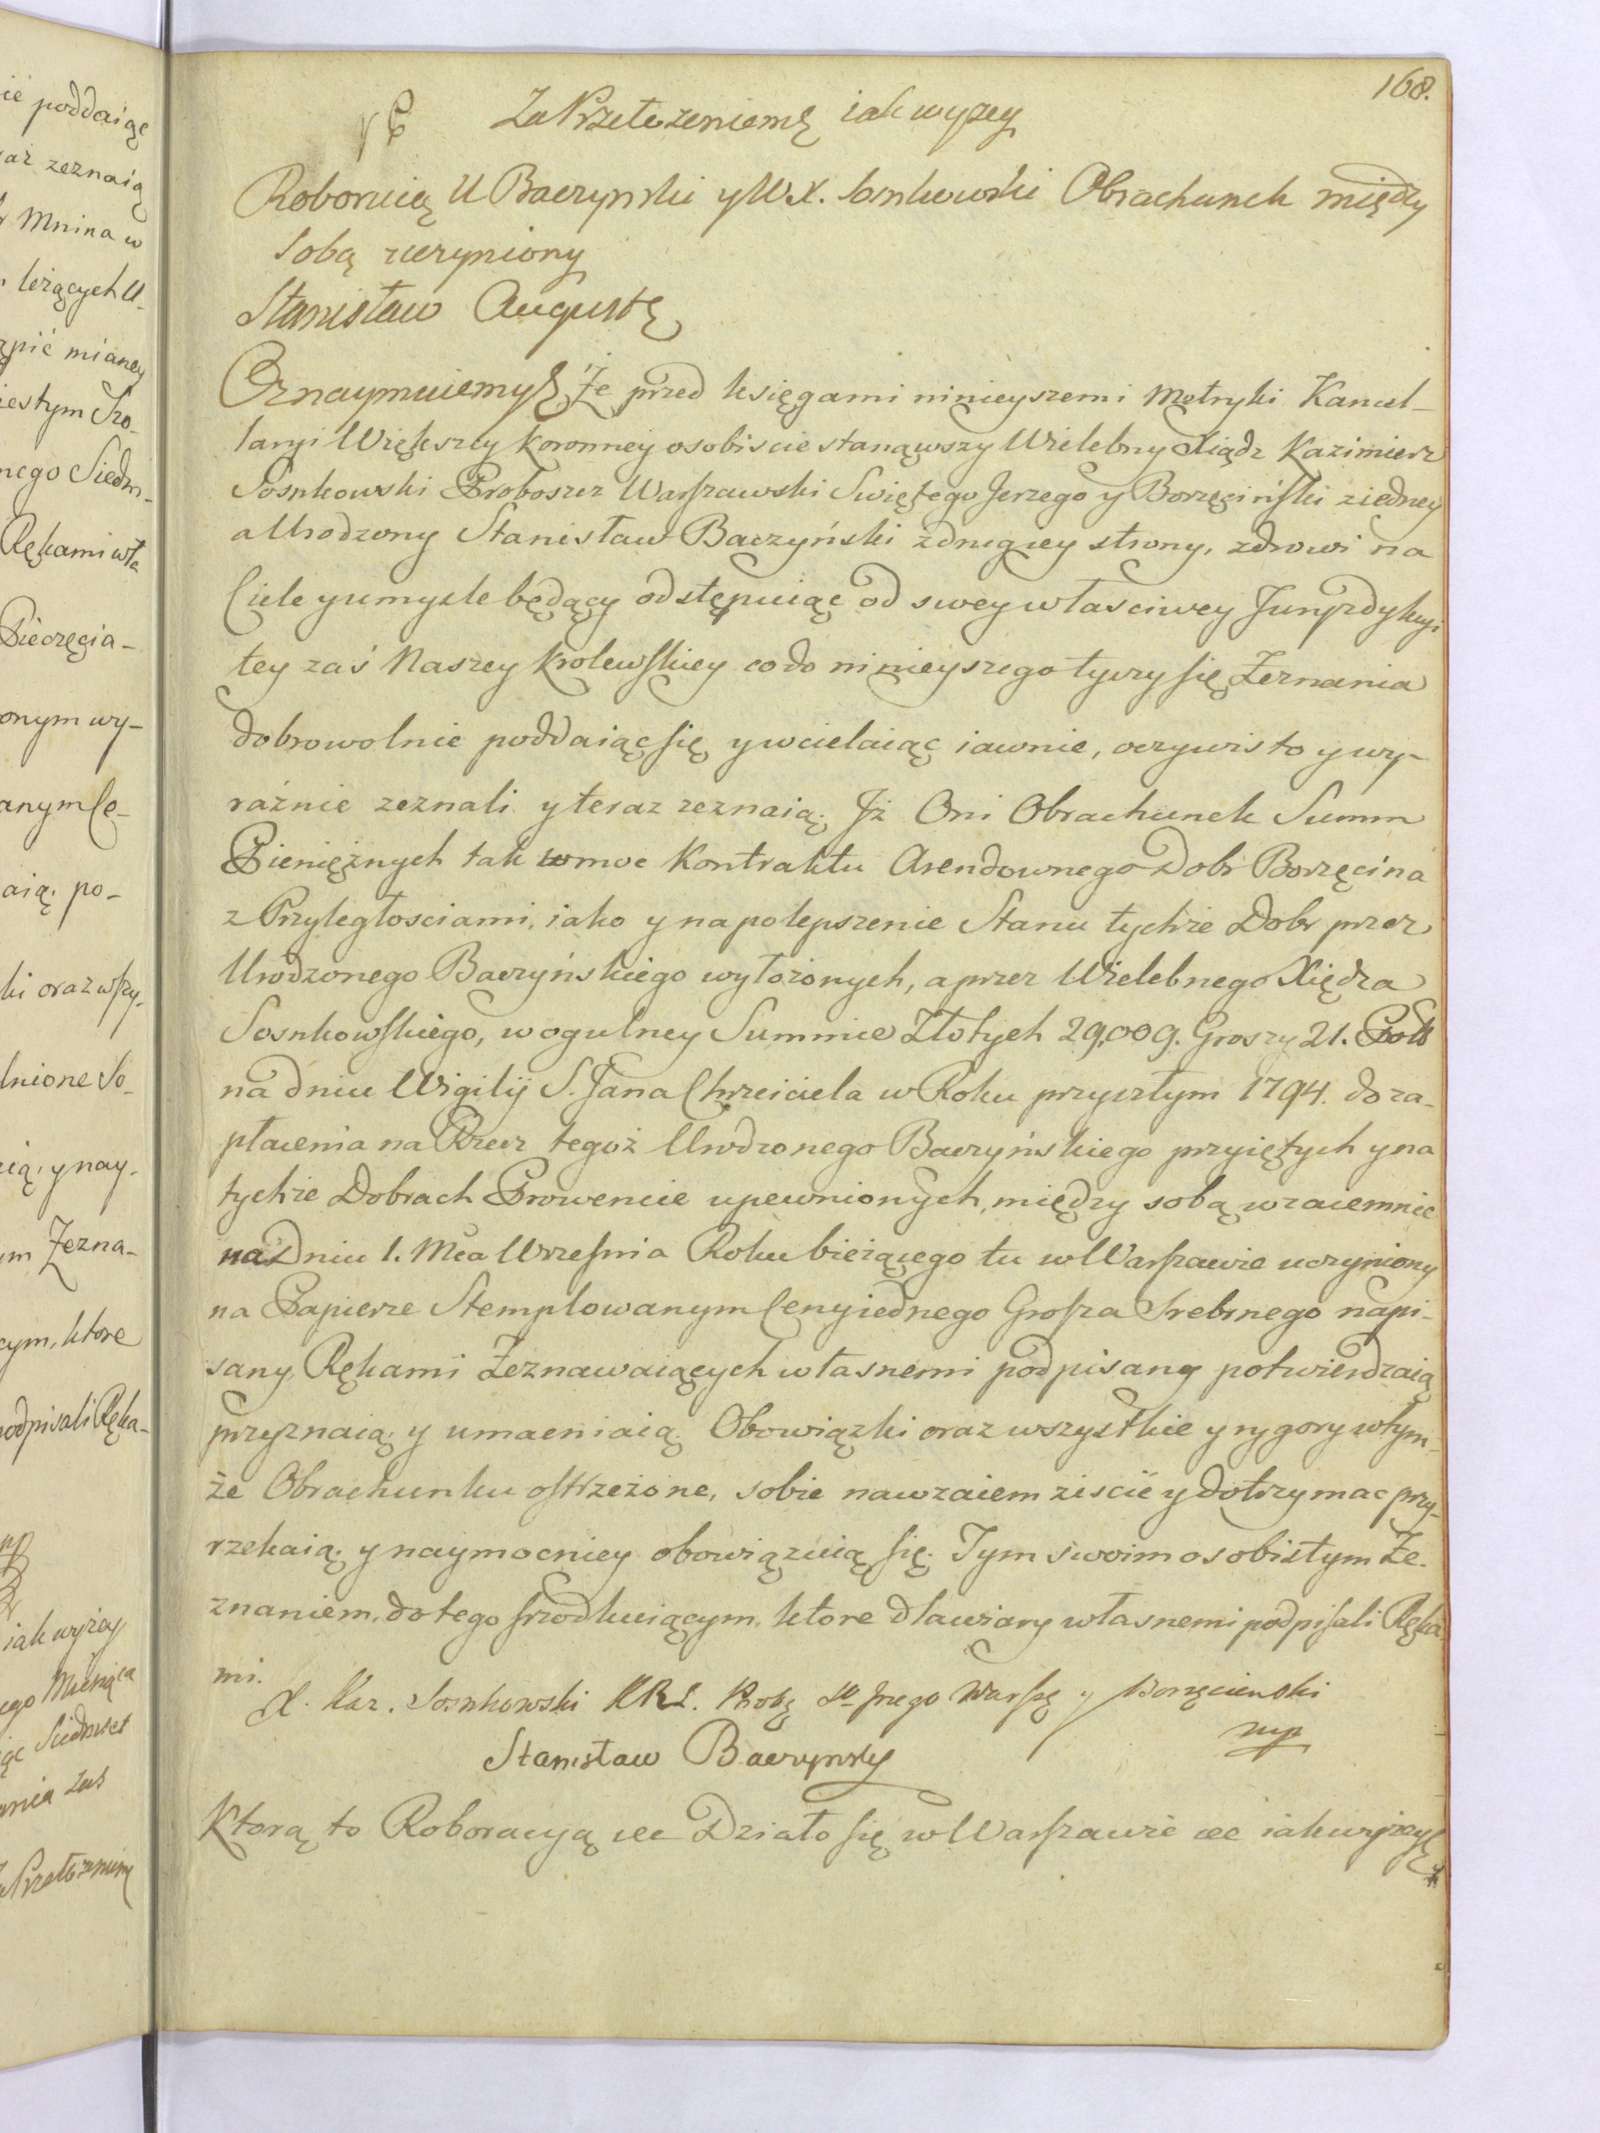 168.
Za Przełożeniem iak wyżey
Roboruią U Baczynski y W X. Sosnkowski Obrachunek między
Sobą uczyniony
Stanisław August
Oznaymuiemy Że przed księgami ninieyszemi Metryki Kancel-
laryi Większey Koronney osobiscie stanąwszy Wielebny Xiądz Kazimierz
Sosnkowski Proboszcz Warszawski Swiętego Jerzego y Borzęciński ziedney
a Urodzony Stanisław Baczyński zdrugiey strony, zdrowi na
Ciele y umysle będący odstępuiąc od swey własciwey Juryzdykcyi
tey zaś Naszey Krolewskiey co do ninieyszego tyczy się Zeznania
dobrowolnie poddaiąc się y wcielaiąc iawnie, oczywisto y wy-
raźnie zeznali y teraz zeznaią. Jż Oni Obrachunek Summ
Pieniężnych tak w moc Kontraktu Arendownego Dobr Borzęcina
z Przyległosciami, iako y na polepszenie Stanu tychże Dobr przez
Urodzonego Baczyńskiego wyłożonych, a przez Wielebnego Xiędza
Sosnkowskiego, w ogulney Summie Złotych 29,009. Groszy 21. Pol
na dniu Wigilij S. Jana Chrzciciela w Roku przyszłym 1794. do za-
płacenia na Rzecz tegoż Urodzonego Baczyńskiego przyiętych y na
tychże Dobrach Prowencie upewnionych, między sobą wzaiemnie
na Dniu 1. Mca Wrzesnia Roku bieżącego tu w Warszawie uczyniony
na Papierze Stemplowanym Ceny iednego Grosza Srebrnego napi-
sany, Rękami Zeznawaiących własnemi podpisany potwierdzaią
przyznaią y umacniaią. Obowiązki oraz wszystkie y rygory w tym-
że Obrachunku ostrzeżone, sobie nawzaiem ziscić y dotrzymac przy-
rzekaią, y naymocniey obowiązuią się. Tym swoim osobistym Ze-
znaniem, do tego srzodkuiącym, ktore dla wiary własnemi podpisali Ręka
mi.
X. Kaz. Sosnkowski KRL. Prob Sgo Jrzego Warsz y Borzęcienski
mp
Stanisław Baczynsky
Ktorą to Roboracyą etc Działo się w Warszawie etc iak wyżey